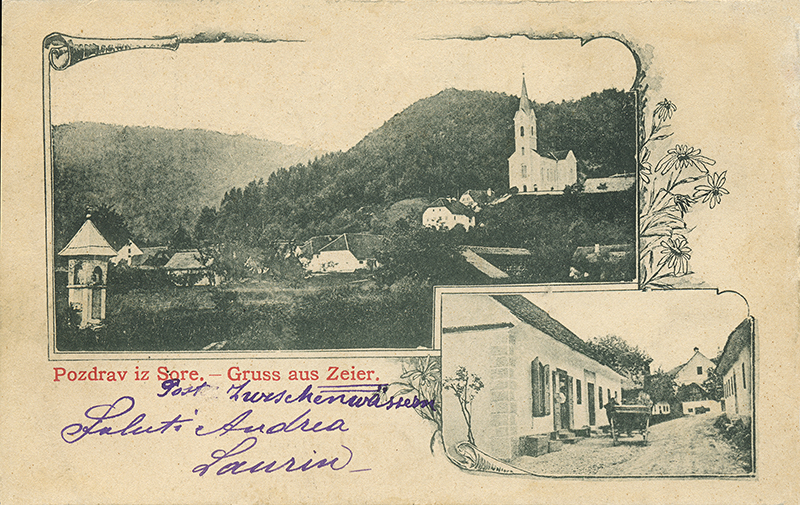 Pozdrav iz Sore. – Gruss aus Zeier.
Post Zwischenwässern
Saluti Andrea
Laurin